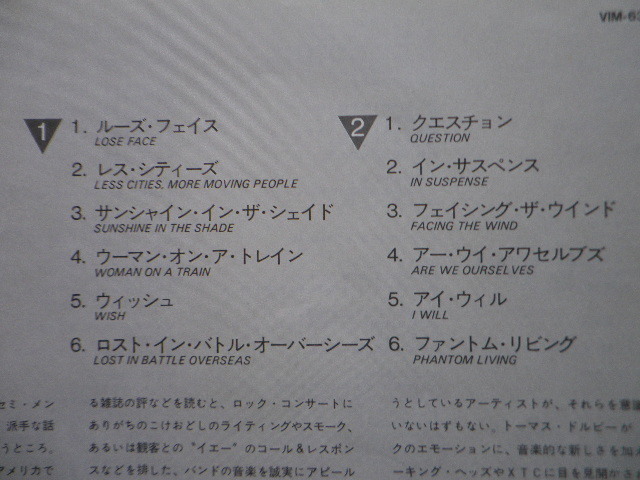 VIM-62
1
1. ルーズ・フェイス
LOSE FACE
2. レス・シティーズ
LESS CITIES, MORE MOVING PEOPLE
3. サンシャイン・イン・ザ・シェイド
SUNSHINE IN THE SHADE
4. ウーマン・オン・ア・トレイン
WOMAN ON A TRAIN
5. ウィッシュ
WISH
6. ロスト・イン・バトル・オーバーシーズ
LOST IN BATTLE OVERSEAS
2
1. クエスチョン
QUESTION
2. イン・サスペンス
IN SUSPENSE
3. フェイシング・ザ・ウインド
FACING THE WIND
4. アー・ウイ・アワセルブズ
ARE WE OURSELVES
5. アイ・ウィル
I WILL
6. ファントム・リビング
PHANTOM LIVING
セミ・メン
派手な話
うところ。
アメリカで
る雑誌の評などを読むと、ロック・コンサートに
ありがちのこけおどしのライティングやスモーク、
あるいは観客との“イエー”のコール＆レスポン
スなどを排した、バンドの音楽を誠実にアピール
うとしているアーティストが、それらを意識
いないはずもない。トーマス・ドルビーがト
クのエモーションに、音楽的な新しさを加え
ーキング・ヘッズやＸＴＣに目を見開かされ